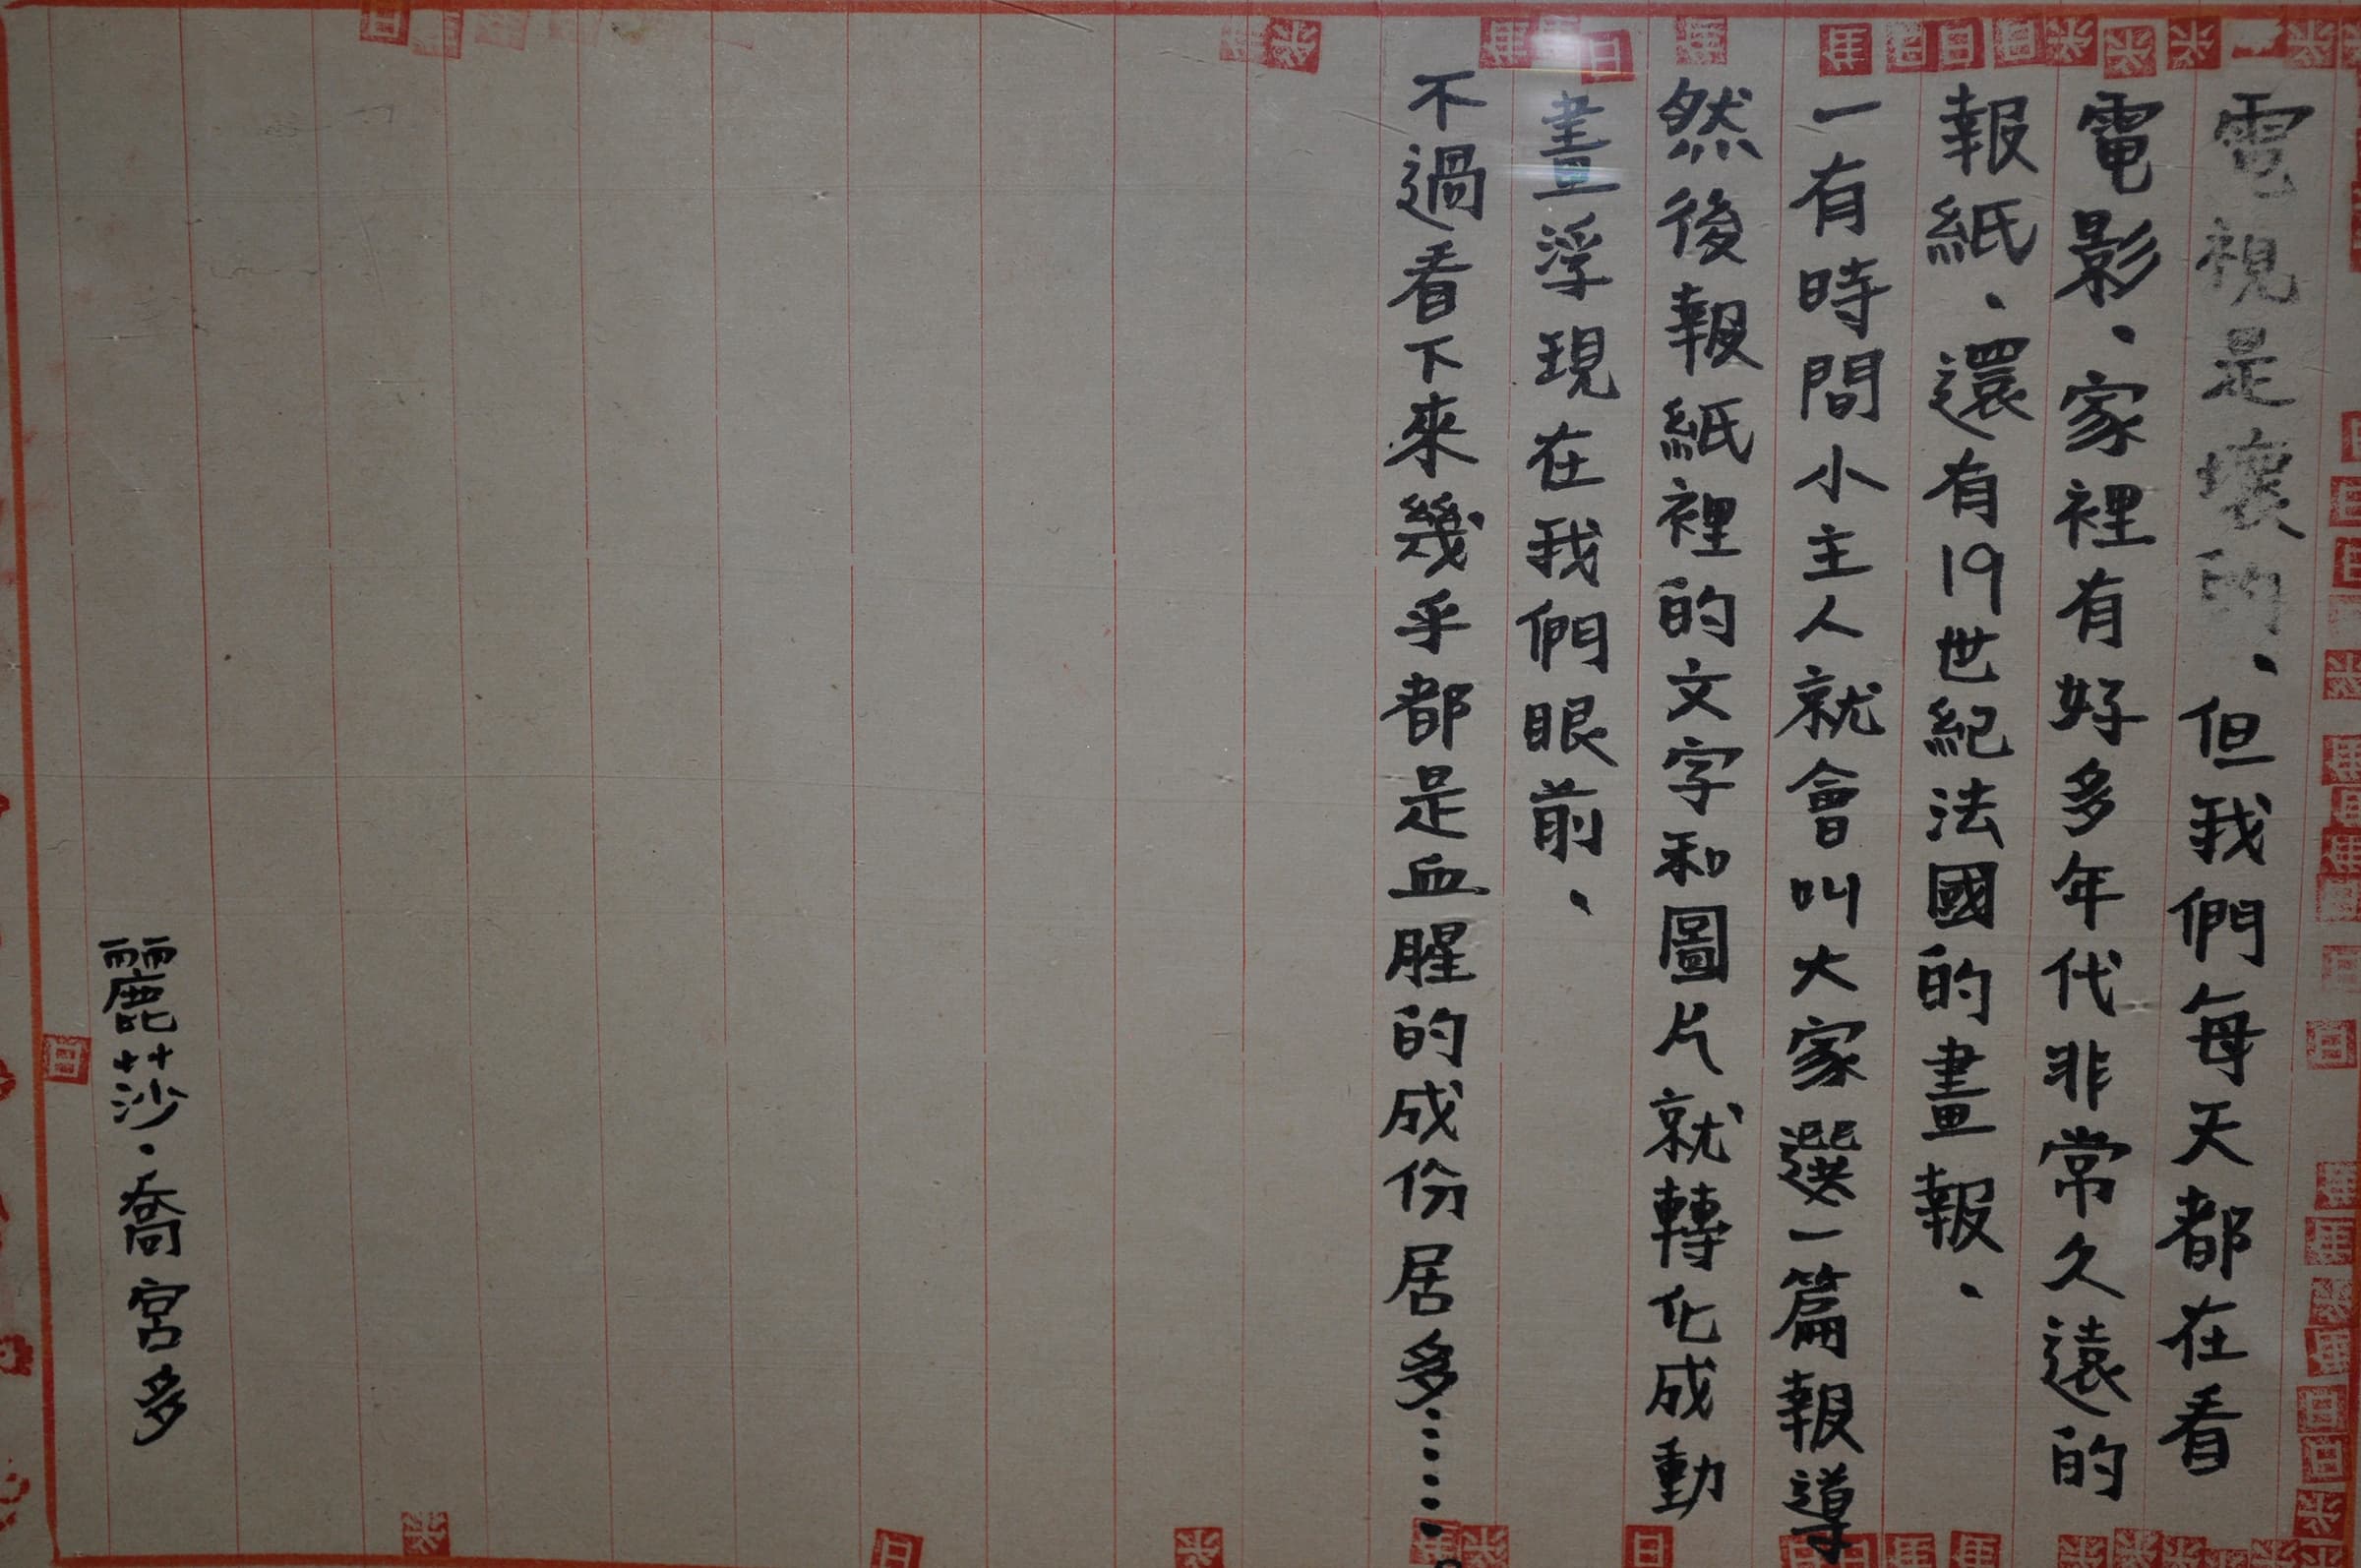 電視是壞的．但我們每天都在看
電影．家裡有好多年代非常久遠的
報紙．還有19世紀法國的畫報．
一有時間小主人就會叫大家選一篇報導
然後報紙裡的文字和圖片就轉化成動
畫浮現在我們眼前．
不過看下來幾乎都是血腥的成份居多……。
麗莎．喬宮多